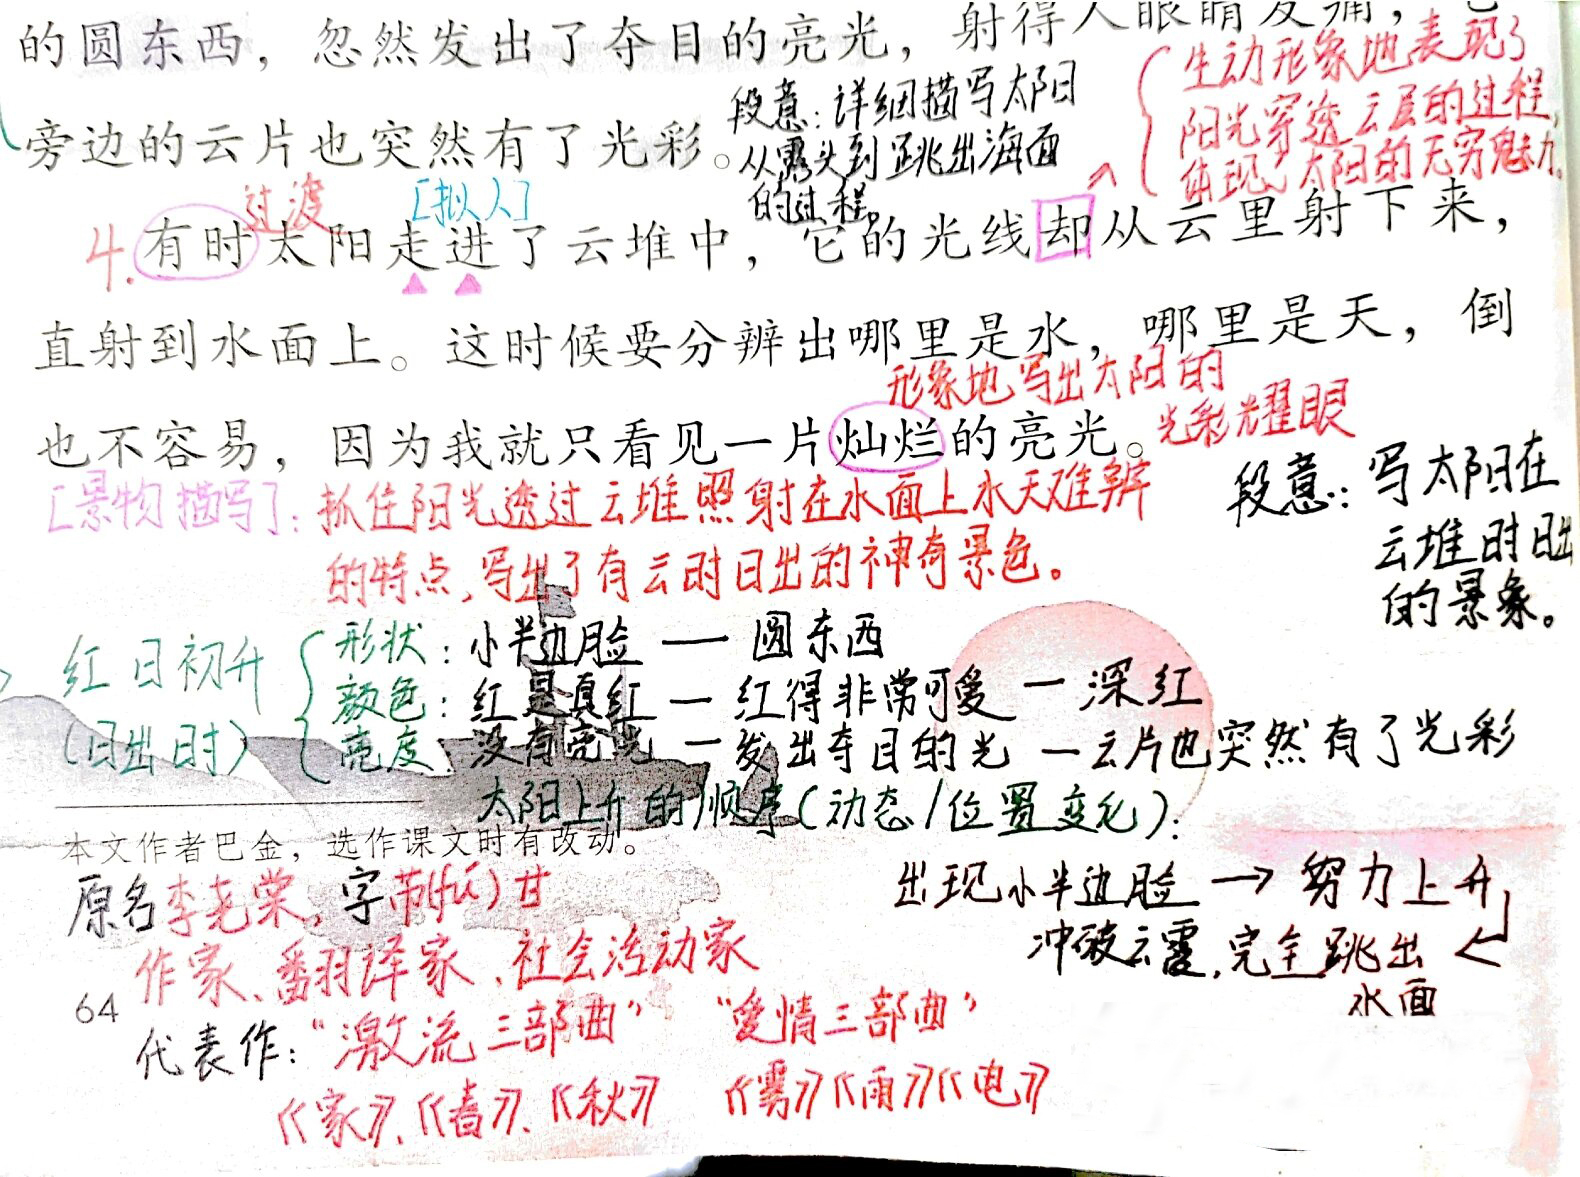 的圆东西，忽然发出了夺目的亮光，射得人眼睛发痛，
生动形象地表现了
阳光穿透云层的过程，
体现了太阳的无穷魅力。
旁边的云片也突然有了光彩。
段意：详细描写太阳
从露头到跳出海面
的过程。
过渡
[拟人]
4.有时太阳走进了云堆中，它的光线却从云里射下来，
直射到水面上。这时候要分辨出哪里是水，哪里是天，倒
形象地写出太阳的
光彩耀眼
也不容易，因为我就只看见一片灿烂的亮光。
[景物描写]：抓住阳光透过云堆照射在水面上水天难辨
的特点，写出了有云时日出的神奇景色。
段意：写太阳在
云堆时日出
的景象。
红日初升
(日出时)
形状：小半边脸 — 圆东西
颜色：红是真红 — 红得非常可爱 — 深红
亮度：没有亮光 — 发出夺目的光 — 云片也突然有了光彩
太阳上升的顺序(动态/位置变化)：
出现小半边脸 → 努力上升
冲破云霞，完全跳出
水面
本文作者巴金，选作课文时有改动。
原名李尧棠，字芾(fú)甘
作家、翻译家、社会活动家
64
代表作：“激流三部曲” “爱情三部曲”
《家》、《春》、《秋》 《雾》《雨》《电》